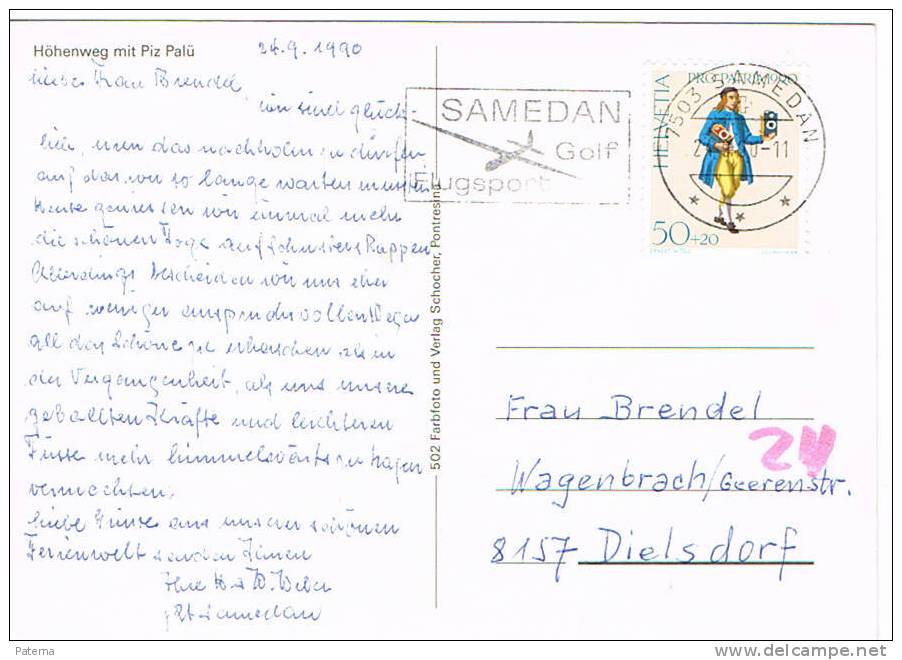 Höhenweg mit Piz Palü
24.9.1990
Liebe Frau Brendel,
wir sind glück-
lich, nun das nachholen zu dürfen
auf das wir so lange warten mussten
Heute geniessen wir einmal mehr
die schönen Tage auf
Allerdings bescheiden wir uns eher
auf weniger anspruchsvollen Wegen
all das Schöne zu erhaschen als in
der Vergangenheit, als uns unsere
geballten Kräfte und leichteren
Füsse mehr himmelswärts zu tragen
vermochten.
Liebe Grüsse aus unserer schönen
Ferienwelt senden Ihnen
Ihre
Samedan
502 Farbfoto und Verlag Schocher, Pontresina
SAMEDAN
Golf
Flugsport
7503 SAMEDAN
-11
HELVETIA
PRO PATRIA 1990
50+20
Frau Brendel
24
Wagenbrach/Geerenstr.
8157 Dielsdorf
Paterna
www.delcampe.net